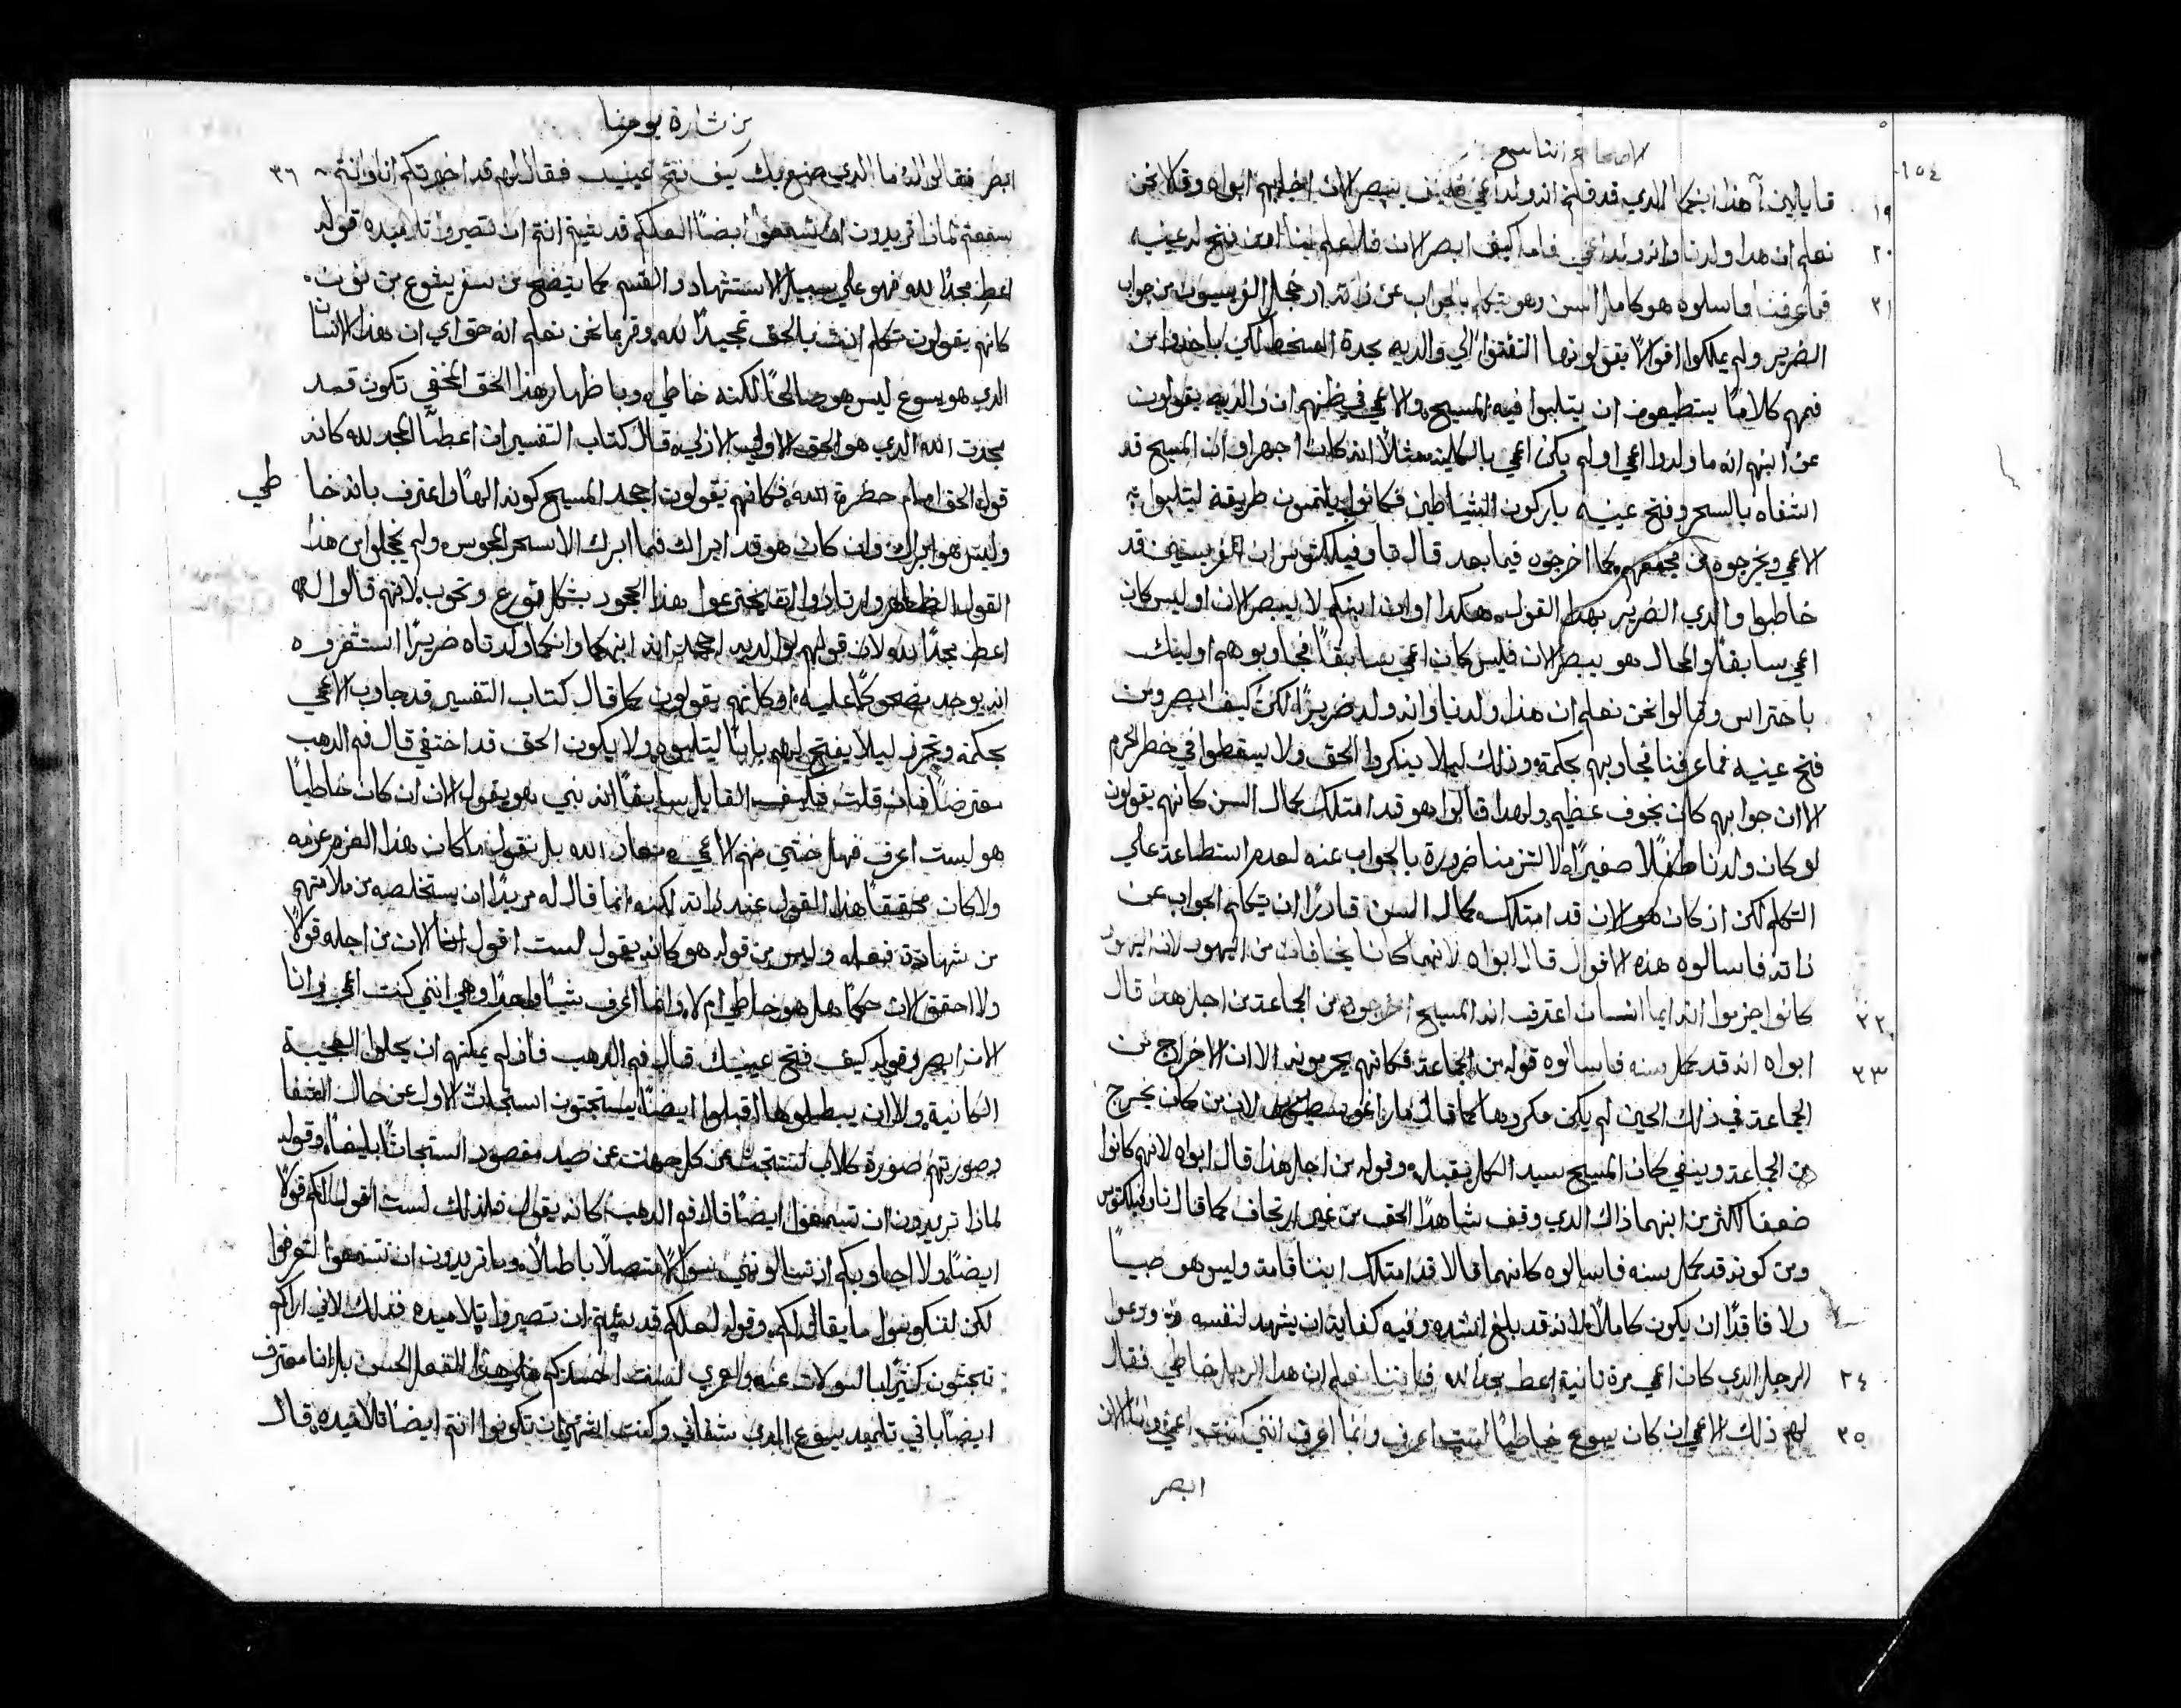 ١٥٤
الاصحاح التاسع
١٩ قايلين آهذا ابنكما الدي قد قلتم انه ولد اعمي فكيف يبصر الان اجابهم ابواه وقالا نحن
٢٠ نعلم ان هدا ولدنا وانه ولد اعمي فاما كيف ابصر الان فلا نعلم او من فتح له عينيه
٢١ فما عرفنا فاسلوه هو كامل السن وهو يتكلم بالجواب عن ذاته اد خجل الفريسيون من جواب
الضرير ولم يملكوا اقوالاً يقولونها التفتوا الي والديه بحدة السخط لكي ياخدوا من
فمهم كلاماً يستطيعون ان يتلبوا فيه المسيح والاعمي في ظنهم ان والديه يقولون
عن ابنهم انه ما ولدوا اعمي او لم يكن اعمي بالكليه مثلاً انه كان اجهر او ان المسيح قد
اشفاه بالسحر وفتح عينيه باركون الشياطين فكانوا يلتمسون طريقة ليتلبوا به
الاعمي ويخرجوه من مجمعهم كما اخرجوه فيما بعد قال ثاوفيلكتوس ان الفريسيين قد
خاطبوا والدي الضرير بهدا القول هكدا او ان ابنكم لا يبصر الان او ليس كان
اعمي سابقاً والحال هو يبصر الان فليس كان اعمي سابقاً فجاوبوهم اوليك
باحتراس وقالوا نحن نعلم ان هدا ولدنا وانه ولد ضريراً لكن كيف ابصر ومن
فتح عينيه فما عرفنا فجاوبهم بحكمة ودلك ليلا ينكروا الحق ولا يسقطوا في خطر الحرم
الا ان جوابهم كان بخوف عظيم ولهدا قالوا هو قد امتلك كمال السن كانهم يقولون
لو كان ولدنا طفلاً صغيراً لالتزمنا ضرورة بالجواب عنه لعدم استطاعته علي
التكلم لكن اذ كان هو الان قد امتلك كمال السن قادراً ان يتكلم الجواب عن
ذاته فاسالوه هذه الاقوال قال ابواه لانهما كانا يخافان من اليهود لان اليهود
٢٢ كانوا جزموا انه ايما انسان اعترف انه المسيح اخرجوه من الجماعة من اجل هدا قال
٢٣ ابواه انه قد كمل سنه فاسالوه قوله من الجماعة فكانهم يحرمونه الا ان الاخراج من
الجماعة في ذلك الحين لم يكن مكروهاً كما قال ماراغوسطينوس لان من كان يخرج
من الجماعة وينفي كان المسيح سيد الكل يقبله وقوله من اجل هذا قال ابواه لانهم كانوا
ضعفا اكثر من ابنهما ذاك الدي وقف شاهدًا للحق من غير ارتجاف كما قال ثاوفيلكتوس
ومن كونه قد كمل سنه فاسالوه كانهما قالا قد امتلك ابننا قامة وليس هو صبياً
ولا فاقدًا ان يكون كاملاً لانه قد بلغ اشده وفيه كفاية ان يشهد لنفسه ودعوا
٢٤ الرجل الدي كان اعمي مرة ثانية اعط مجداً لله فاننا نعلم ان هدا الرجل خاطي فقال
٢٥ لهم ذلك الاعمي ان كان يسوع خاطياً لست اعرف وانما اعرف انني كنت اعمي وانا الان
ابصر
من بشارة يوحنا
ابصر فقالوا له ما الدي صنع بك كيف فتح عينيك فقال لهم قد اخبرتكم انا وانتم ٣٦
سمعتم لماذا تريدون ان تسمعوا ايضاً العلكم قد شيتم انتم ان تصيروا تلاميده قوله
اعط مجدًا لله فهو علي سبيل الاستشهاد والقسم كما يتضح من سفر يشوع بن نون
كانهم يقولون تكلم انت بالحق تمجيداً لله وقر بما نحن نعلم انه حق اي ان هذا الانسان
الدي هو يسوع ليس هو صالحاً لكنه خاطي وباظهار هذا الحق المخفي تكون قد
مجدت الله الدي هو الحق الاولي الازلي قال كتاب التفسير ان اعطا المجد لله كانه
قول الحق امام حضرة الله فكانهم يقولون اجحد المسيح كونه الهاً واعترف بانه خاطي
وليس هو ابراك وان كان هو قد ابراك فما ابراك الا بسحر المجوس ولم يخجلوا من هذا
القول الظاهر وارتادوا ان يخترعوا هدا الجحود بشكل تورع وتحوب لانهم قالوا له
اعط مجدًا لله لان قولهم لوالديه اجحدا انه ابنكما وانكما ولدتاه ضريرًا استشفروه
انه يوجد مضحوكًا عليه او كانهم يقولون كما قال كتاب التفسير قد جاوب الاعمي
بحكمة وتحرز ليلا يفتح لهم باباً ليتلبوه ولا يكون الحق قد اختفي قال فم الدهب
معترضاً فان قلت فكيف القايل سابقاً انه نبي هو يقول الان ان كان خاطياً
هو لست اعرف فهل خشي منهم الاعمي معاذ الله بل نقول ما كان هذا الغرض غرضه
ولا كان محققاً هذا القول عند ذاته لكنه انما قال له مريدًا ان يستخلصه من ملامتهم
من شهادة فعله وليس من قوله هو كانه يقول لست اقول انا الان من اجله قولاً
ولا احقق الان حكمًا هل هو خاطي ام لا وانما اعرف شياً واحدًا وهي انني كنت اعمي وانا
الان ابصر وقوله كيف فتح عينيك قال فم الدهب فاذ لم يمكنهم ان يحلوا العجيبة
الكاينة ولا ان يبطلوها اقبلوا ايضاً يستبحثون استبحاث الاول عن حال الشفا
وصورتهم صورة كلاب تستبحث من كل جهات عن صيد مقصود استبحاثاً بليغاً وقوله
لماذا تريدون ان تسمعوا ايضاً قال فم الدهب كانه يقول فلذلك لست اقول لكم قولاً
ايضاً ولا اجاوبكم اذ تسالونني سوالاً متصلاً باطلاً وما تريدون ان تسمعوا لتعرفوا
لكن لتنكوسوا ما يقال لكم وقوله لعلكم قد شيتم ان تصيروا تلاميده فدلك لاني اراكم
تبحثون كثيرًا بالسولات عنه ولعمري لست احسدكم علي هذا الفعل الحسن بل انا معترف
ايضاً باني تلميد يسوع الدي شفاني وكنت اشتهي ان تكونوا انتم ايضاً تلاميده قال